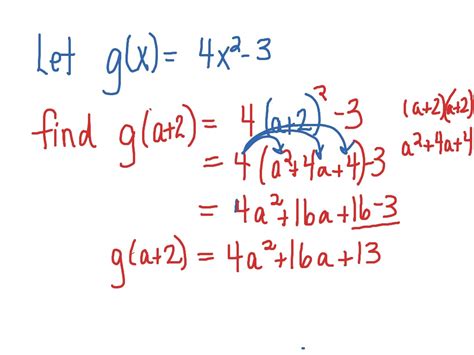 Let g(x) = 4x²-3
find g(a+2) = 4(a+2)² -3
(a+2)(a+2)
= 4(a²+4a+4)-3
a²+4a+4
= 4a²+16a+16-3
g(a+2) = 4a²+16a+13